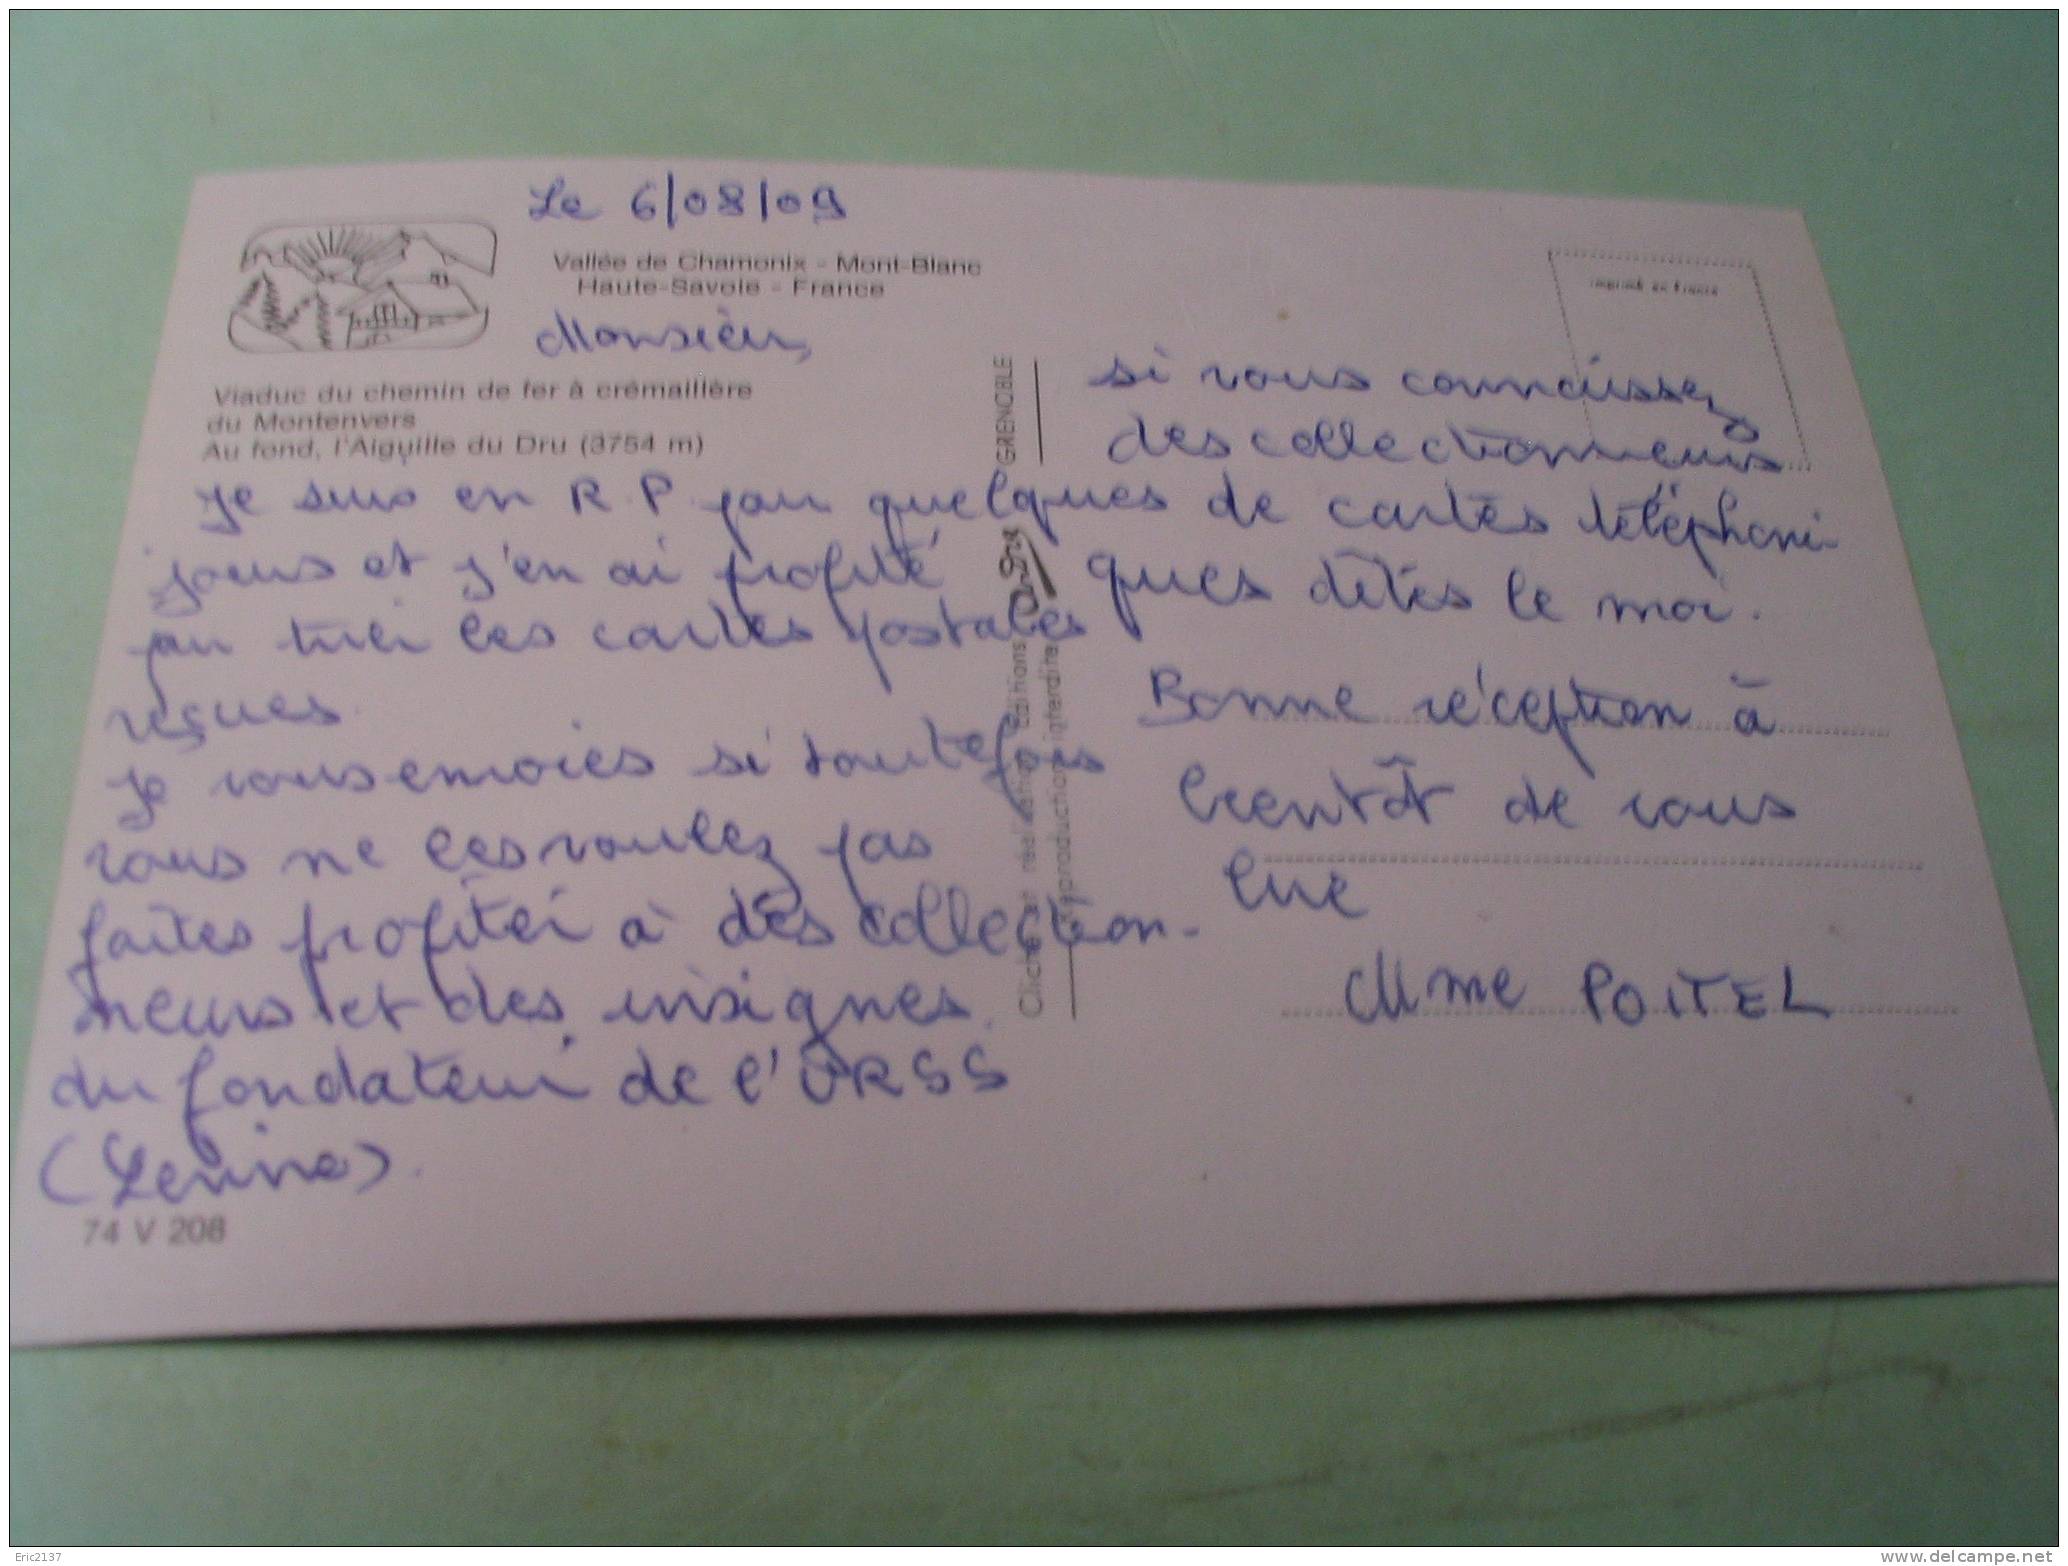 Le 6/08/09
Vallée de Chamonix - Mont-Blanc
Haute-Savoie - France
Monsieur,
Viaduc du chemin de fer à crémaillère
du Montenvers
Au fond, l'Aiguille du Dru (3754 m)
Je suis en R.P. pour quelques
jours et j'en ai profité
pour trier les cartes postales
reçues.
Je vous envoies si toutefois
vous ne les voulez pas
faites profiter à des collection-
neurs et des insignes
du fondateur de l'URSS
(Lenine).
74 V 208
GRENOBLE
Cliché et réalisation éditions
Reproduction interdite
imprimé en France
si vous connaissez
des collectionneurs
de cartes téléphoni-
ques dîtes le moi.
Bonne réception à
bientôt de vous
lire
Mme POITEL
Eric2137
www.delcampe.net